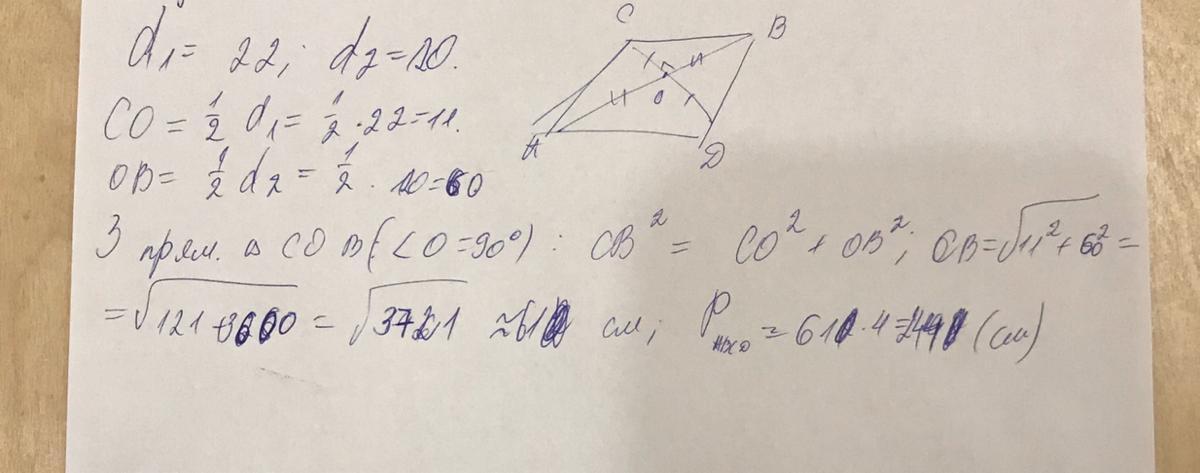 d₁ = 22; d₂ = 120.
C
B
O
A
D
CO = 1/2 d₁ = 1/2 · 22 = 11.
OB = 1/2 d₂ = 1/2 · 120 = 60
З прям. △ COB (∠O = 90°): CB² = CO² + OB²; CB = √11² + 60² =
= √121 + 3600 = √3721 ≈ 61 см; P = 61 · 4 = (см)